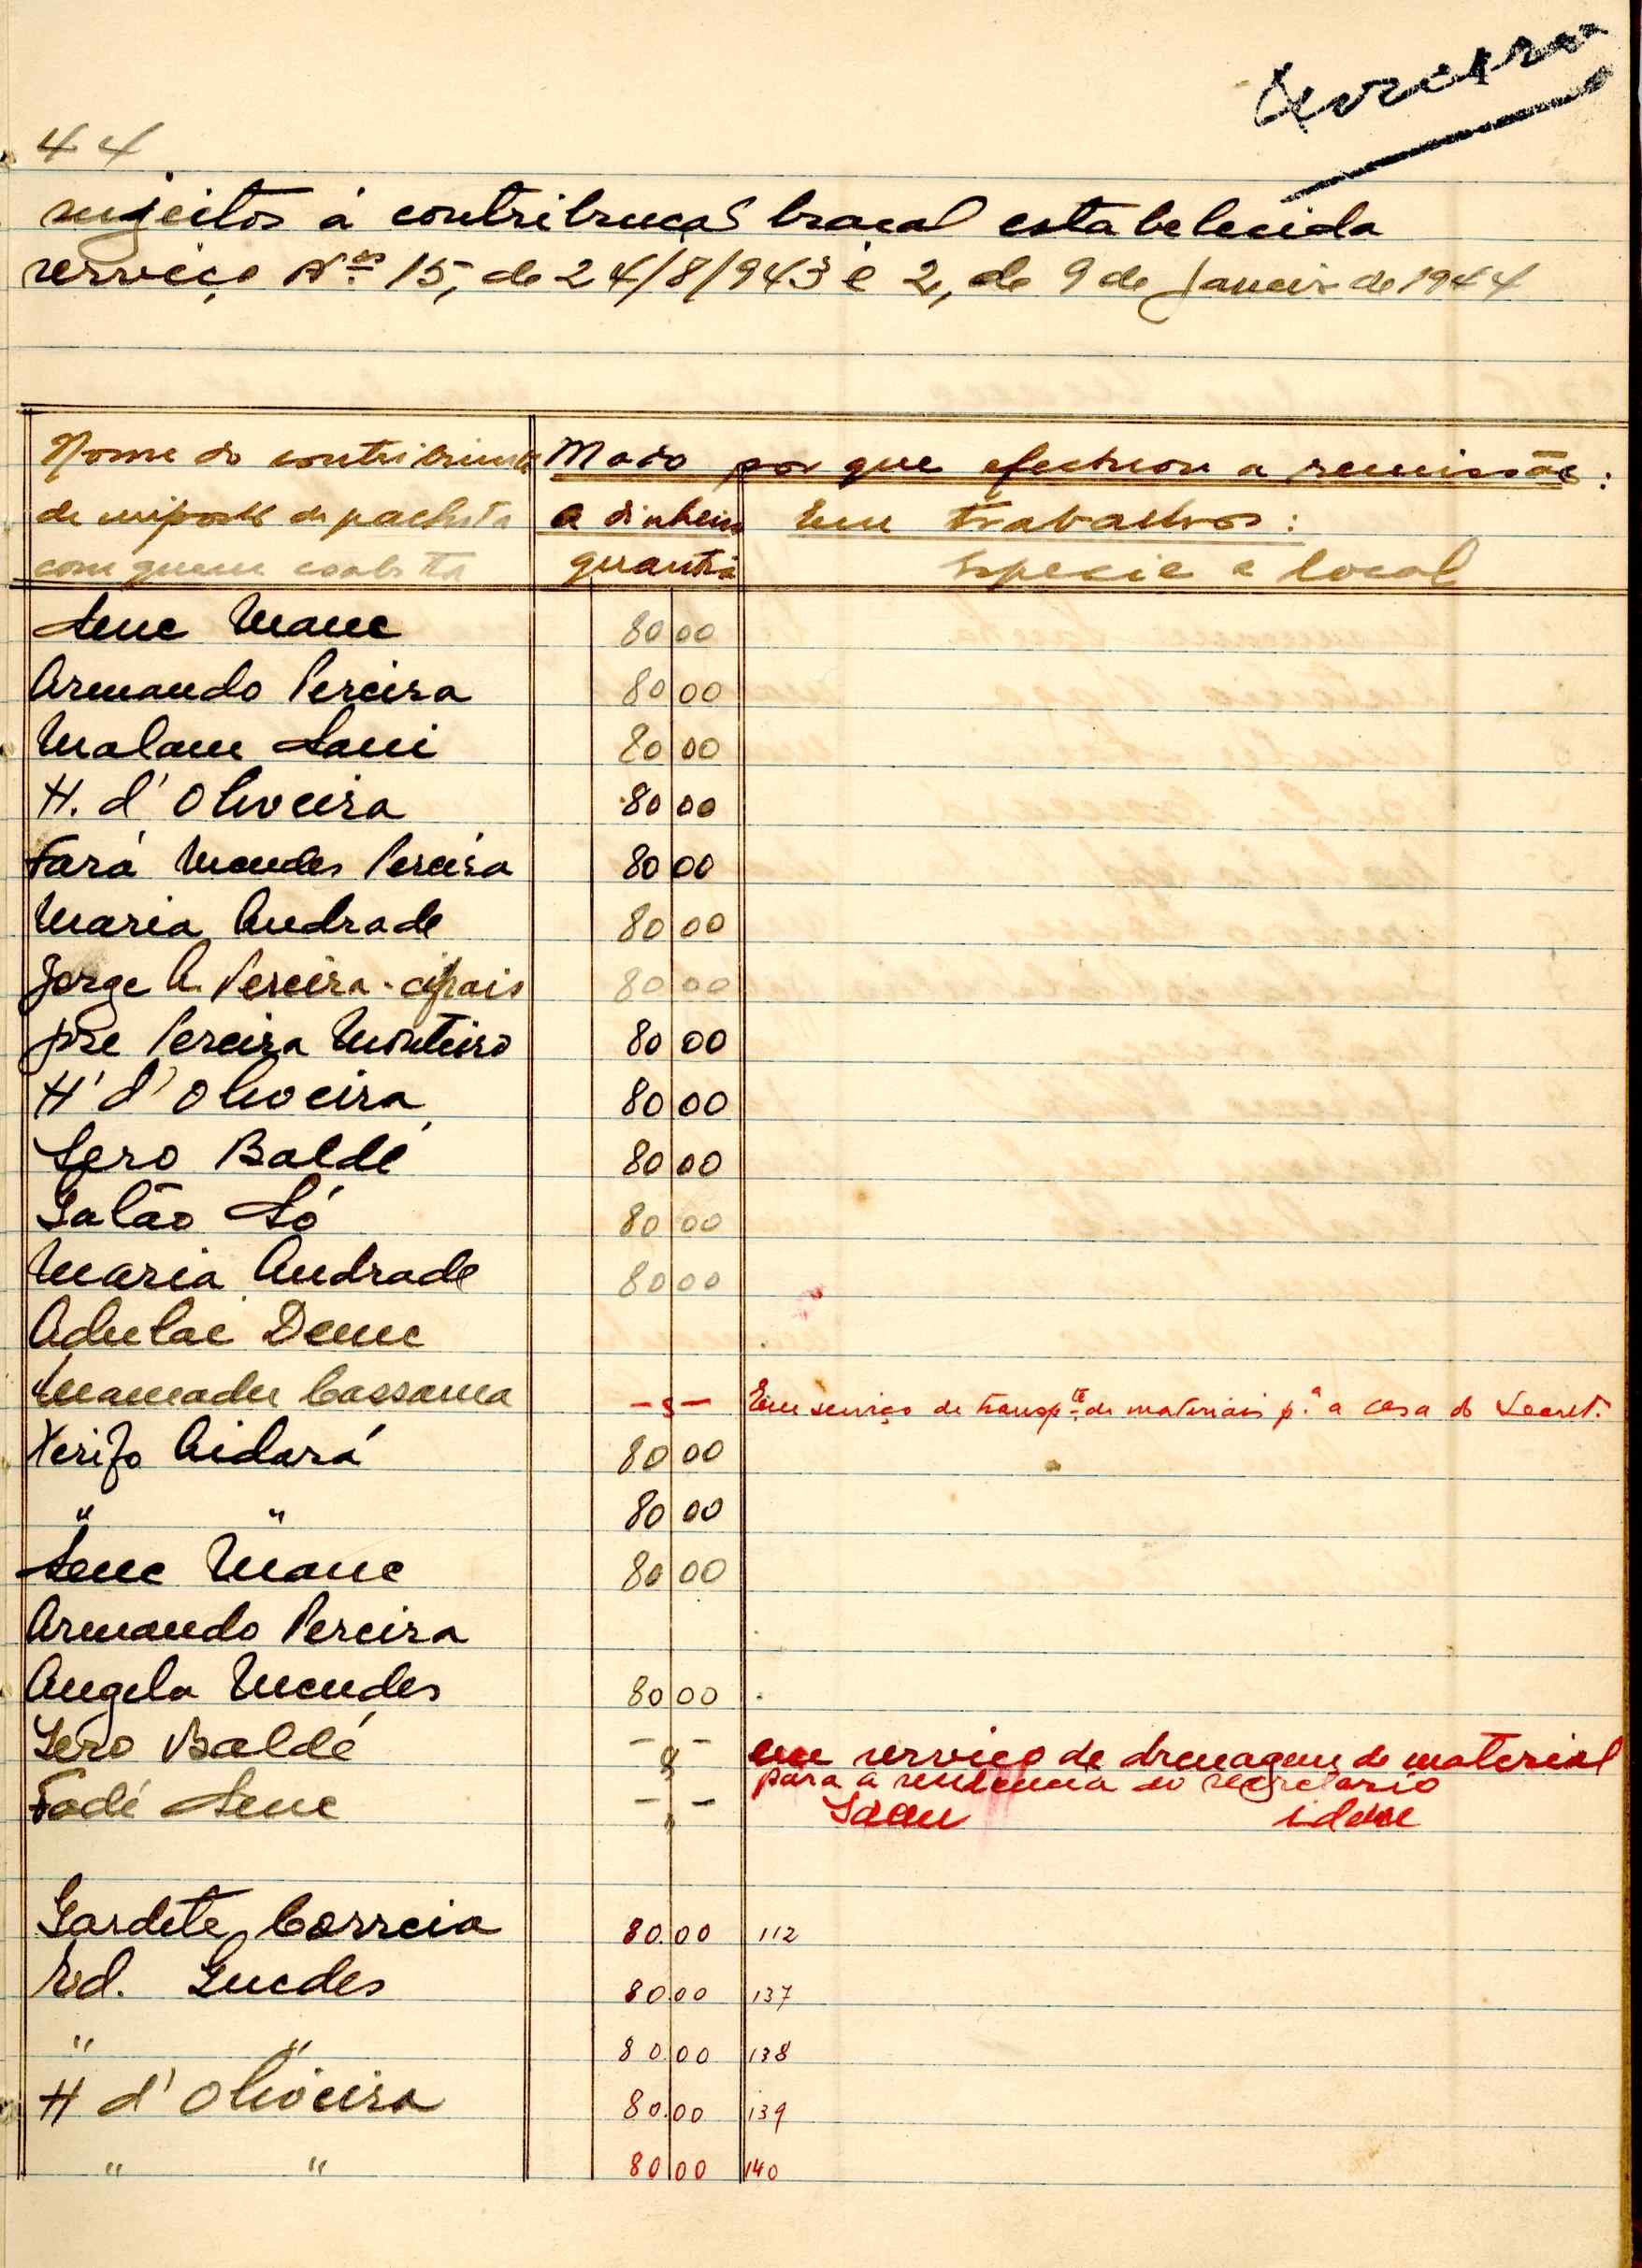 44
sujeitos á contribuição braçal estabelecida
serviço Nºs 15, de 24/8/943 e 2, de 9 de Janeiro de 1944
Nome do contribuinte Modo por que efectuou a remissão:
de imposto de palhota a dinheiro Em trabalhos:
com quem coabita quantia Especie e local
Sene Mane 80 00
Armando Pereira 80 00
Malam Sani 80 00
H. d'Oliveira 80 00
Fará Mendes Pereira 80 00
Maria Andrade 80 00
Jorge A. Pereira - cipais 80 00
José Pereira Monteiro 80 00
H' d'Oliveira 80 00
Sero Baldé 80 00
Galão Só 80 00
Maria Andrade 80 00
Adulai Deme
Mamadu Cassama -s- Em serviço de transpte de materiais p.ª a casa do Secret.º
Xerifo Aidará 80 00
" " 80 00
Sene Mane 80 00
Armando Pereira
Angela Mendes 80 00
Sero Baldé - $ - em serviço de drenagem de material
para a residencia do secretario
Fodé Sene - , - Idem idem
Gardete Correia 80.00 112
Ed. Guedes 80.00 137
" " 80.00 138
H d'Oliveira 80.00 139
" " 80.00 140